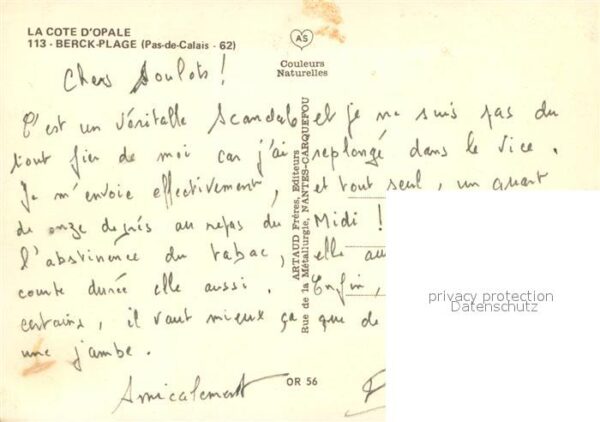 LA COTE D'OPALE
113 - BERCK-PLAGE (Pas-de-Calais - 62)
AS
Couleurs
Naturelles
Chers Loulots !
C'est un véritable scandale et je ne suis pas du
tout fier de moi car j'ai replongé dans le vice.
Je m'envoie effectivement, et tout seul, un quart
de onze degrés au repas du Midi !
l'abstinence du tabac, elle au
courte durée elle aussi. Enfin,
certains, il vaut mieux ça que de
une jambe.
Amicalement
ARTAUD Frères, Editeurs
Rue de la Métallurgie, NANTES-CARQUEFOU
OR 56
privacy protection
Datenschutz